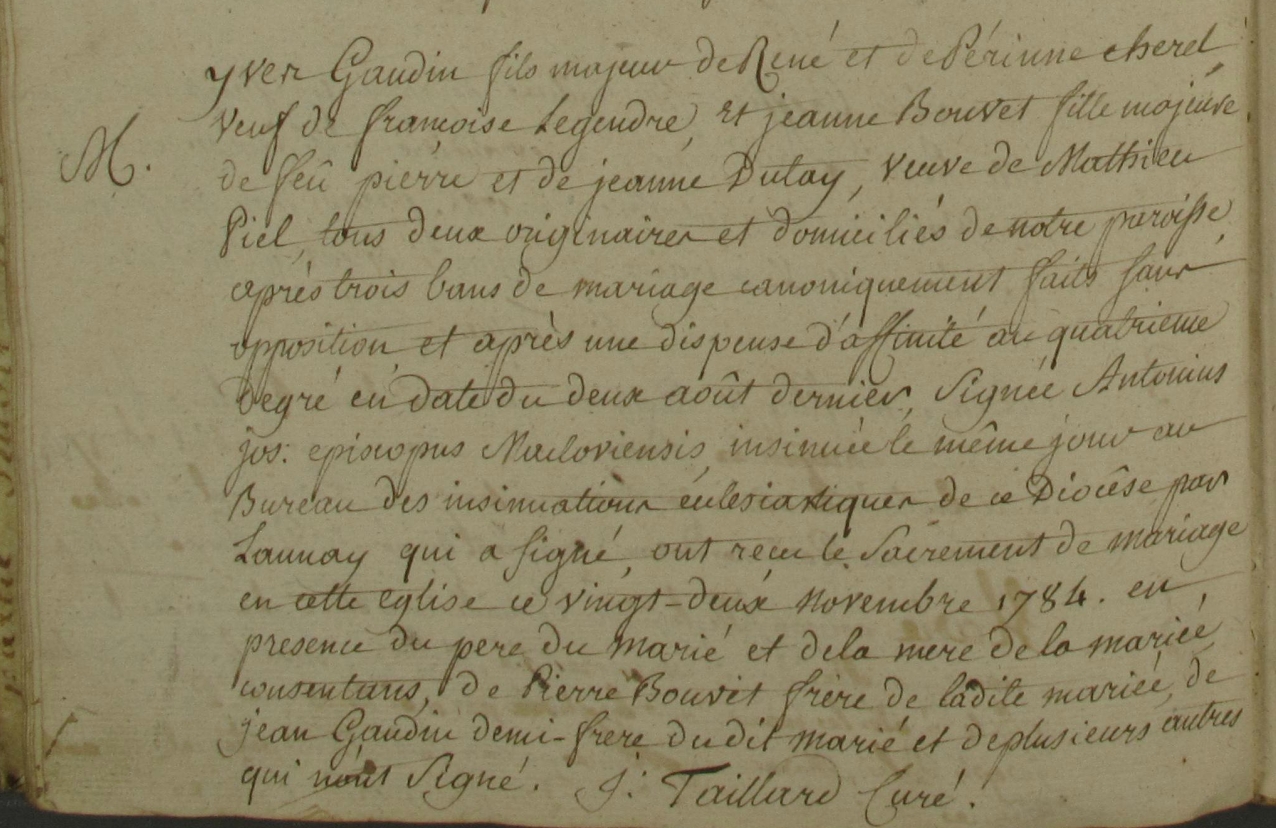 yver Gaudin fils majeur de René et de Périnne cherel
veuf de francoise Legendre, et jeanne Bouvet fille majeure
M. de feû pierre et de jeanne Dutay, veuve de Mathieu
Piel, tous deux originaires et domiciliés de notre paroisse,
après trois bans de mariage canoniquement faits sans
opposition et après une dispense d'affinité au quatrieme
degré en date du deux août dernier, signée Antonius
jos: episcopus Macloviensis, insinuée le même jour au
Bureau des insinuations éclesiastiques de ce Diocêse par
Launay qui a signé, ont recu le sacrement de mariage
en cette eglise ce vingt-deux novembre 1784. en
presence du pere du marié et de la mere de la mariée,
consentans, de Pierre Bouvet frère de ladite mariée, de
jean Gaudin demi-frere du dit marié et de plusieurs autres
qui n'ont signé. J: Taillard Curé.